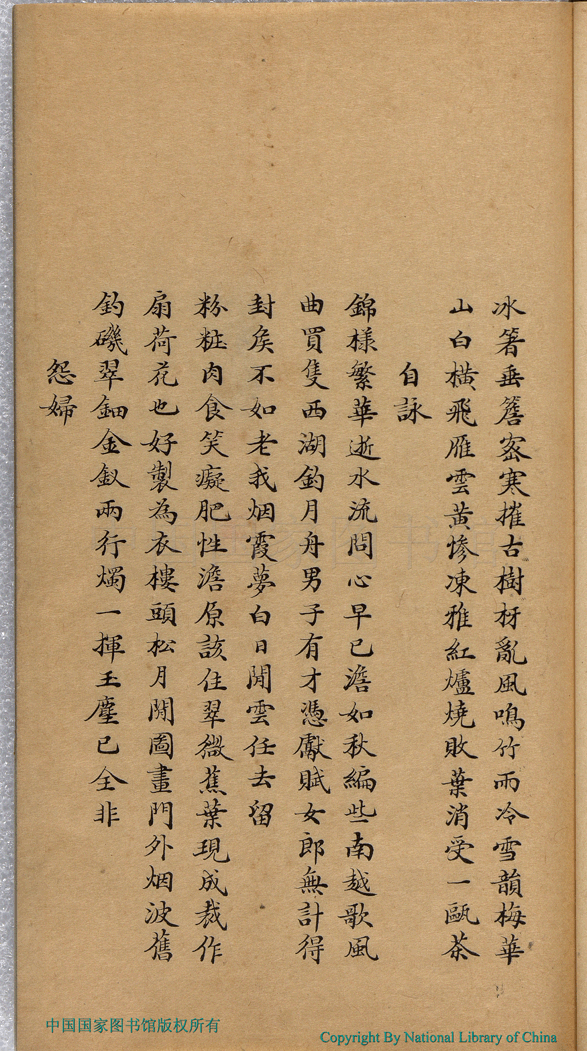 冰箸垂簷密寒摧古樹枒亂風鳴竹雨冷雪韻梅華
山白橫飛雁雲黃慘凍雅紅爐燒敗葉消受一甌茶
自詠
錦樣繁華逝水流問心早已澹如秋編些南越歌風
曲買隻西湖釣月舟男子有才憑獻賦女郎無計得
封矦不如老我烟霞夢白日閒雲任去留
粉粧肉食笑癡肥性澹原該住翠微蕉葉現成裁作
扇荷花也好製為衣樓頭松月閒圖畫門外烟波舊
釣磯翠鈿金釵兩行燭一揮玉麈已全非
怨婦
中国国家图书馆版权所有
Copyright By National Library of China